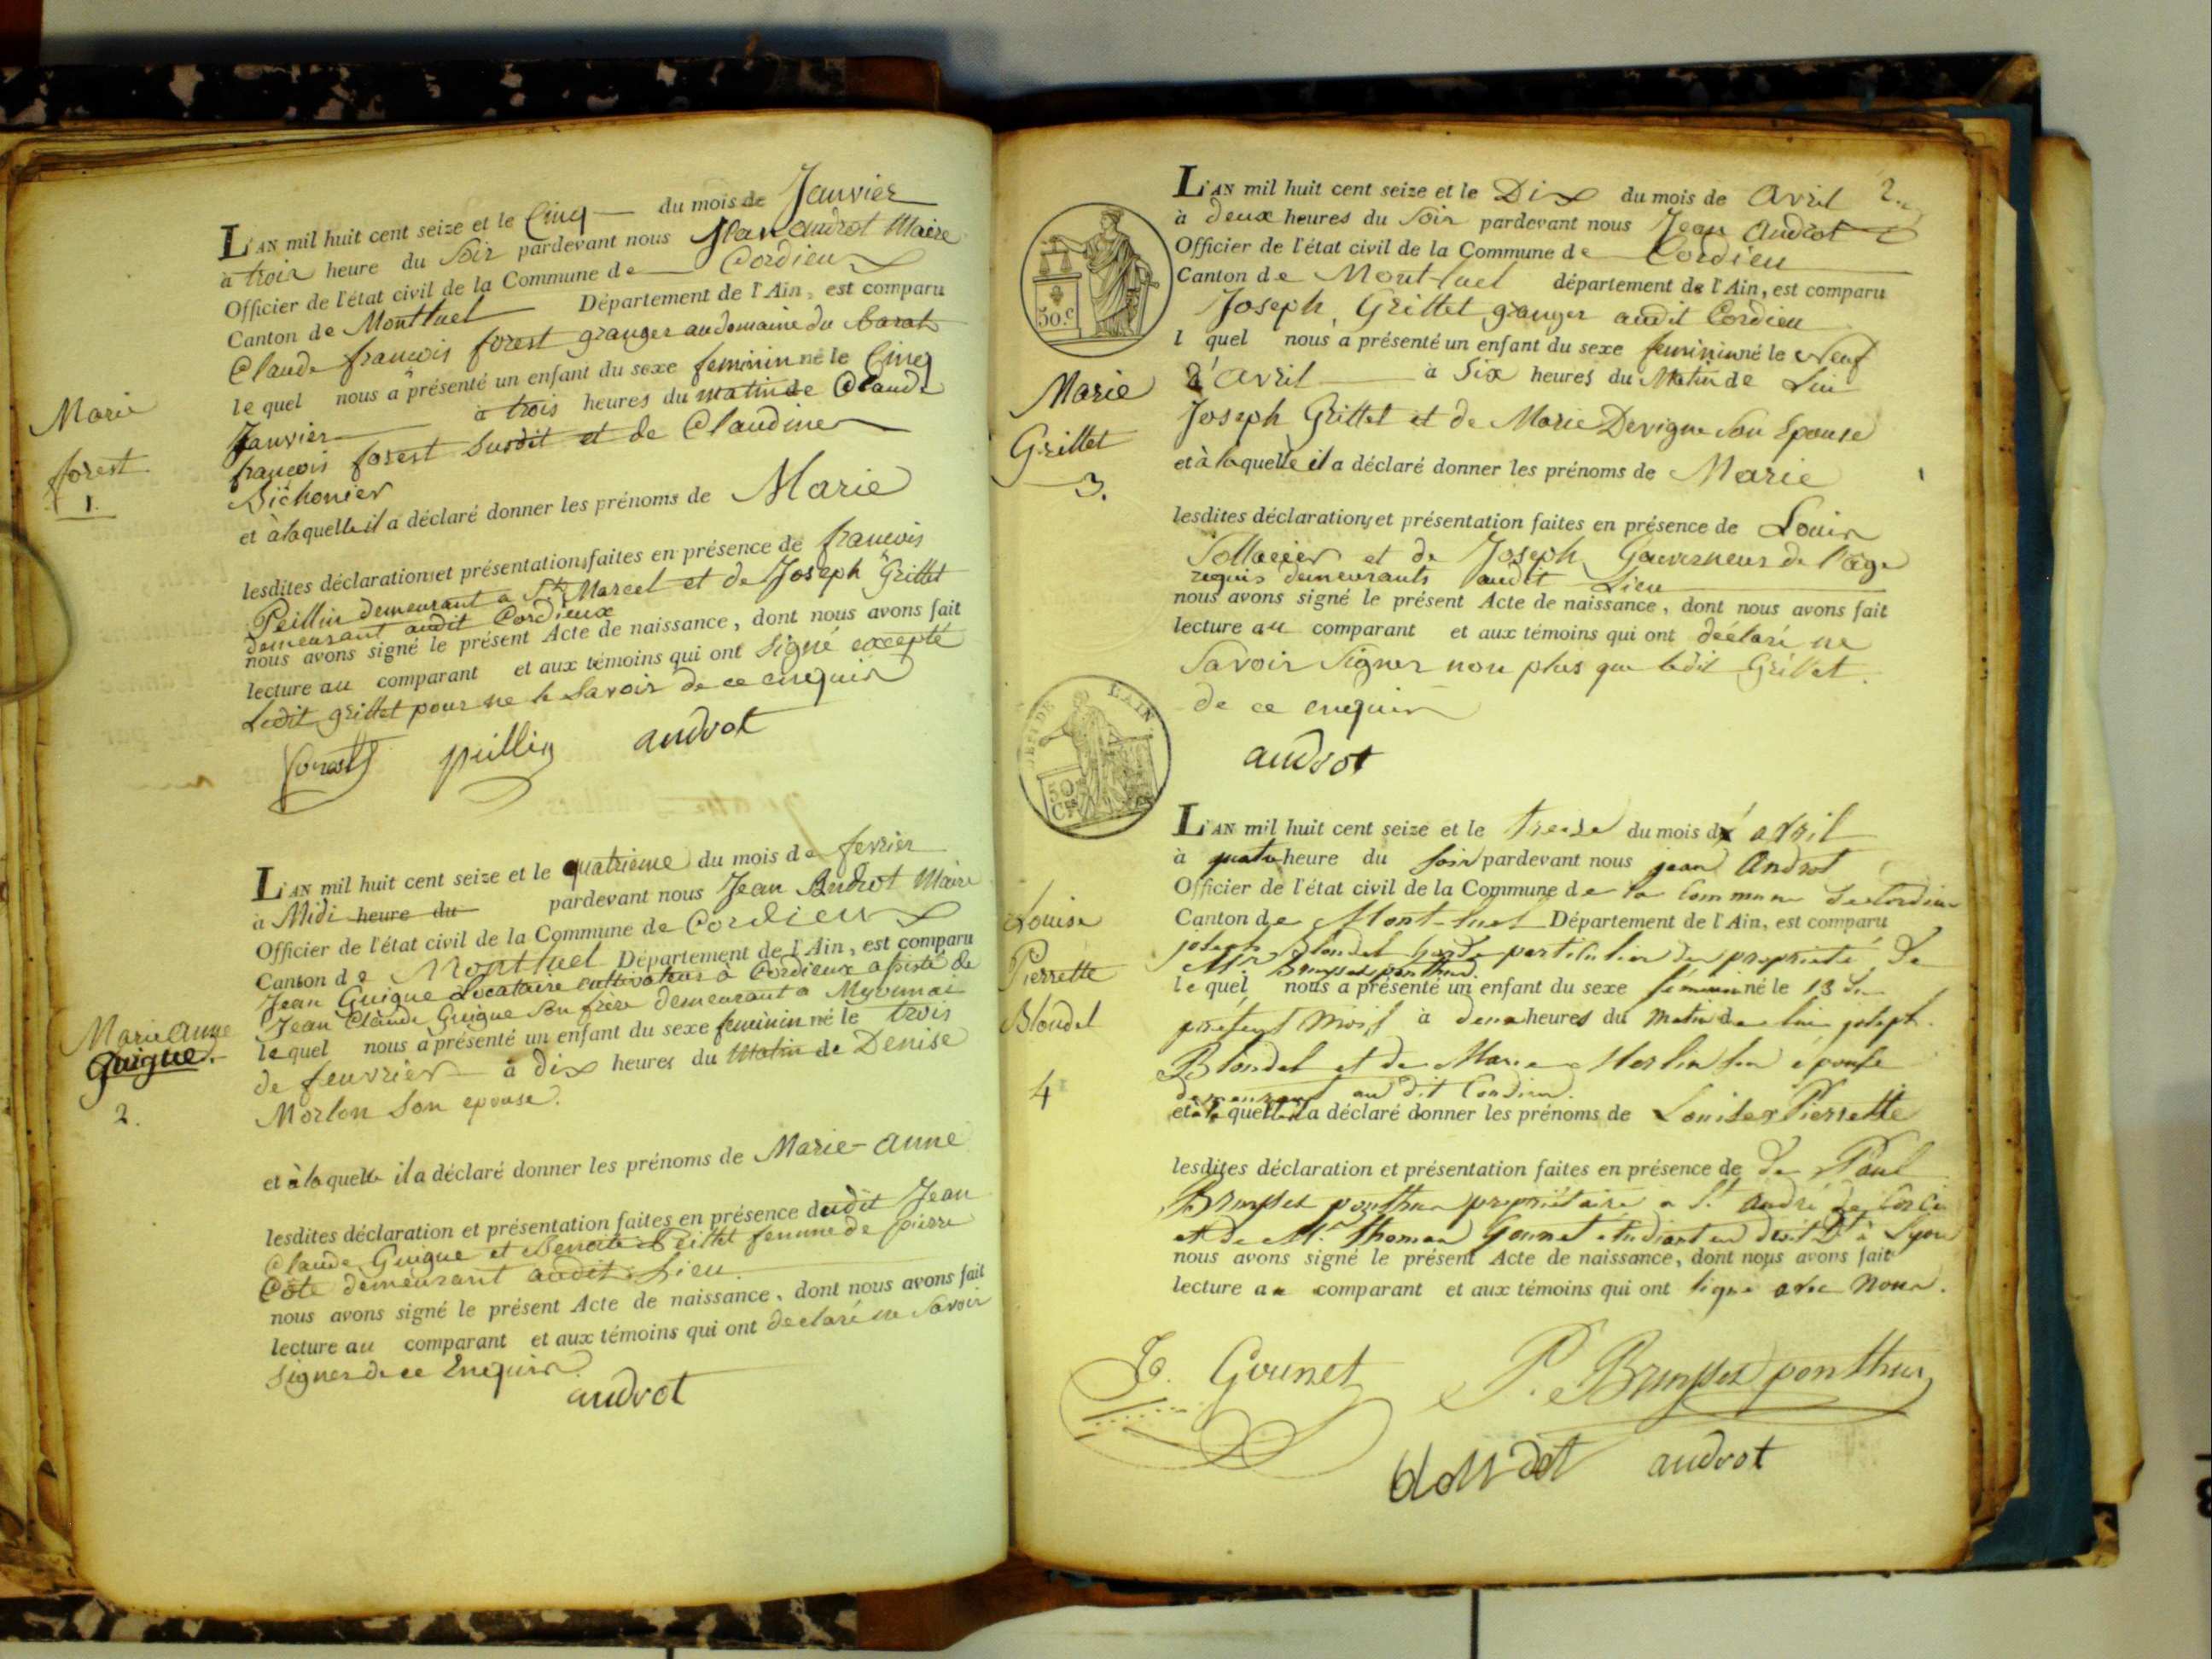 L'AN mil huit cent seize et le Cinq du mois de Janvier
à trois heure du Soir pardevant nous Jean audrot Maire
Officier de l'état civil de la Commune de Cordieux
Canton de Montluel Département de l'Ain, est comparu
Claude françois forest granger au domaine du barat
le quel nous a présenté un enfant du sexe feminin né le Cinq
Janvier à trois heures du matin de Claude
françois forest Susdit et de Claudine
Bichonier
et à laquelle il a déclaré donner les prénoms de Marie
lesdites déclarations et présentations faites en présence de françois
Peillin demeurant a St Marcel et de Joseph Grillet
demeurant audit Cordieux
nous avons signé le présent Acte de naissance, dont nous avons fait
lecture au comparant et aux témoins qui ont Signé excepté
Ledit grillet pour ne le Savoir de ce enquis
Marie
forest
1.
forest peillin audrot
L'AN mil huit cent seize et le quatrieme du mois de fevrier
à Midi heure du pardevant nous Jean Audrot Maire
Officier de l'état civil de la Commune de Cordieux
Canton de Montluel Département de l'Ain, est comparu
Jean Guigue Locataire cultivateur à Cordieux assisté de
Jean Claude Guigue Son frere demeurant a
le quel nous a présenté un enfant du sexe feminin né le trois
de feuvrier à dix heures du Matin de Denise
Morlon Son epouse.
et à laquelle il a déclaré donner les prénoms de Marie-anne
lesdites déclaration et présentation faites en présence dudit Jean
Claude Guigue et Benoite femme de pierre
Côte demeurant audit Lieu
nous avons signé le présent Acte de naissance, dont nous avons fait
lecture au comparant et aux témoins qui ont declaré ne Savoir
Signer de ce Enquis
Marie anne
Guigue.
2.
audrot
2.
L'AN mil huit cent seize et le Dix du mois de Avril
à deux heures du Soir pardevant nous Jean Audrot
Officier de l'état civil de la Commune de Cordieu
Canton de Mont-luel département de l'Ain, est comparu
Joseph Grillet granger audit Cordieu
l quel nous a présenté un enfant du sexe feminin né le Neuf
d'avril à Six heures du Matin de Lui
Joseph Grillet et de Marie Devigne Son Epouse
et à laquelle il a déclaré donner les prénoms de Marie
lesdites déclarations et présentation faites en présence de Louis
et de Joseph Gouverneur de l'age
requis demeurants audit Lieu
nous avons signé le présent Acte de naissance, dont nous avons fait
lecture au comparant et aux témoins qui ont déclaré ne
Savoir Signer non plus que ledit Grillet.
de ce enquis
50.c
Marie
Grillet
3.
audrot
DEPt DE L'AIN
50 CES
L'AN mil huit cent seize et le treize du mois d'avril
à quatre heure du Soir pardevant nous jean Androt
Officier de l'état civil de la Commune de la Commune de Cordieu
Canton de Mont-luel Département de l'Ain, est comparu
joseph Blondel garde particulier des proprieté de
Mr Brusset ponthus.
le quel nous a présenté un enfant du sexe féminin né le 13 du
présent Mois à deux heures du matin de lui joseph
Blondel et de Marie Merlin son épouse
demeurant au dit Cordieu.
et à la quelle il a déclaré donner les prénoms de Louise Pierrette
lesdites déclaration et présentation faites en présence de de Paul
Brusset ponthus propriétaire a St André de Corcy
et de Mr Thomas Gounet étudiant en droit Dt à Lyon
nous avons signé le présent Acte de naissance, dont nous avons fait
lecture au comparant et aux témoins qui ont signé avec Nous.
Louise
Pierrette
Blondel
4
Gounet P. Brusset ponthus
blondel audrot